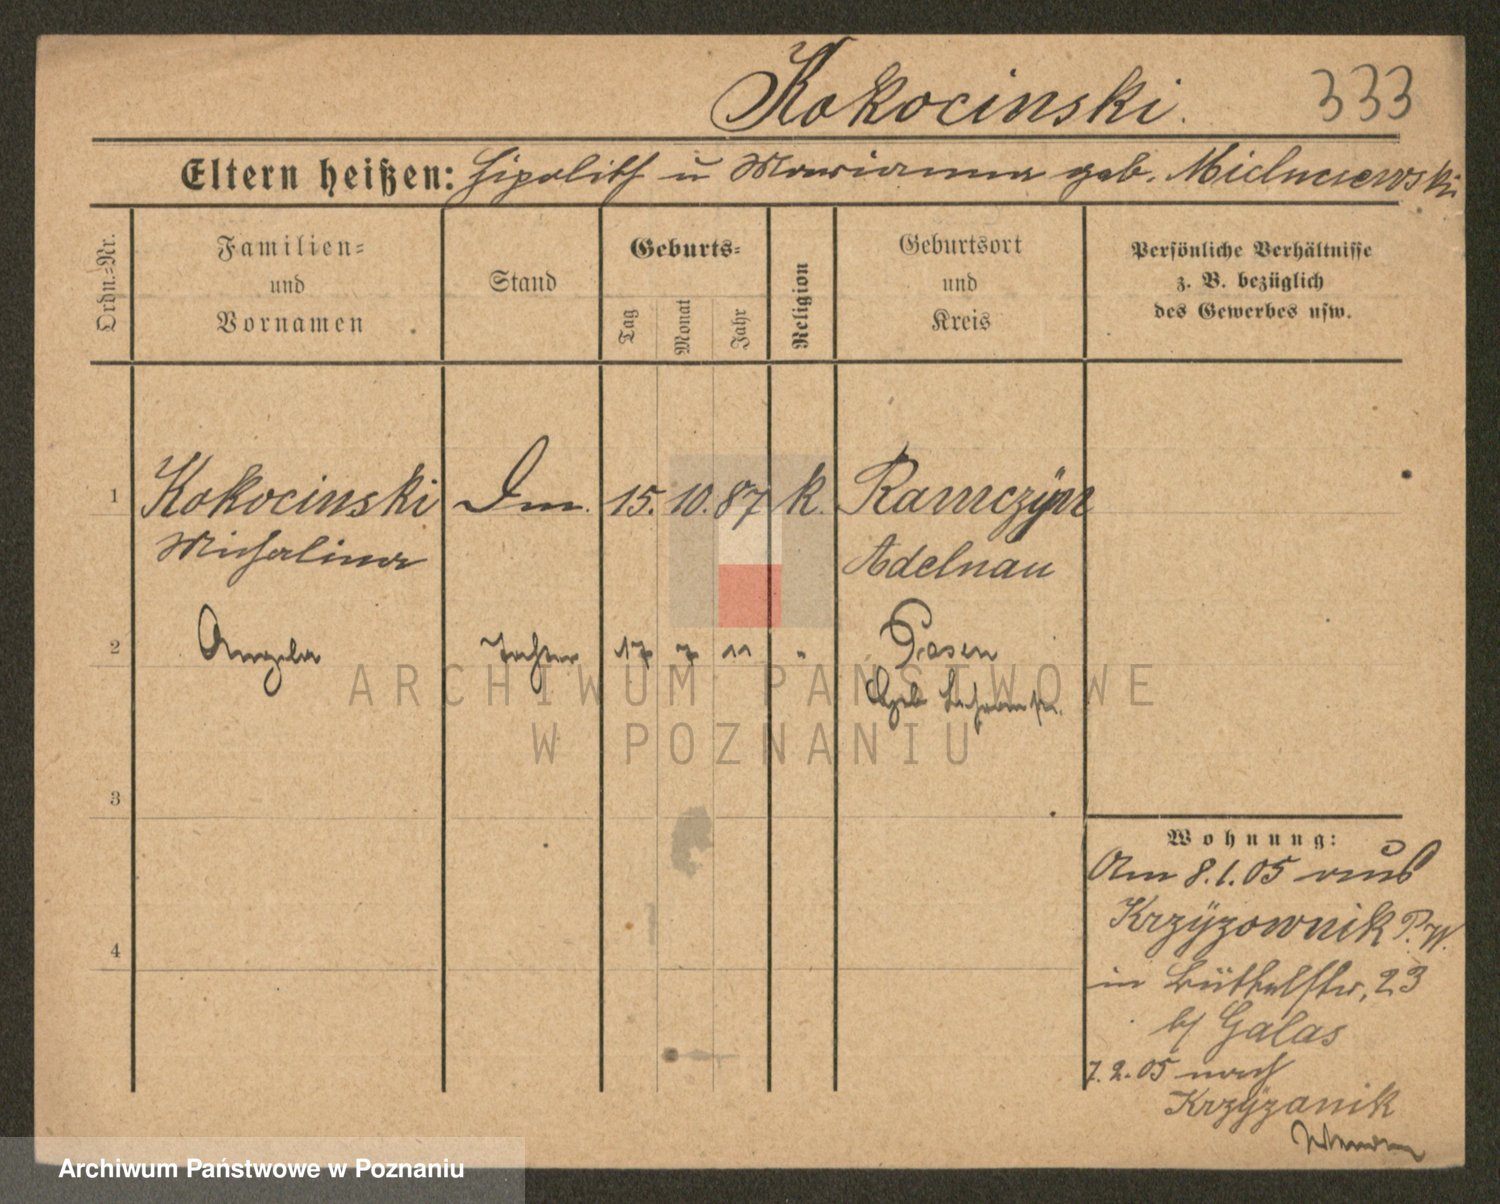 Kokocinski.
333
Eltern heißen: Hipolith u Marianna geb.
Ordn.=Nr.
Familien=
und
Vornamen
Stand
Geburts=
Tag
Monat
Jahr
Religion
Geburtsort
und
Kreis
Persönliche Verhältnisse
z. B. bezüglich
des Gewerbes usw.
1
Kokocinski
Dm. 15. 10. 87 k.
Michalina
Adelnau
2
Angela
Tochter 17 7 11 "
Posen
3
4
Wohnung:
Am 8.1.05 aus
Krzyzownik P. W.
in Büttelstr. 23
b/ Galas
7.2.05 nach
Krzyzanik
ARCHIWUM PAŃSTWOWE
W POZNANIU
Archiwum Państwowe w Poznaniu